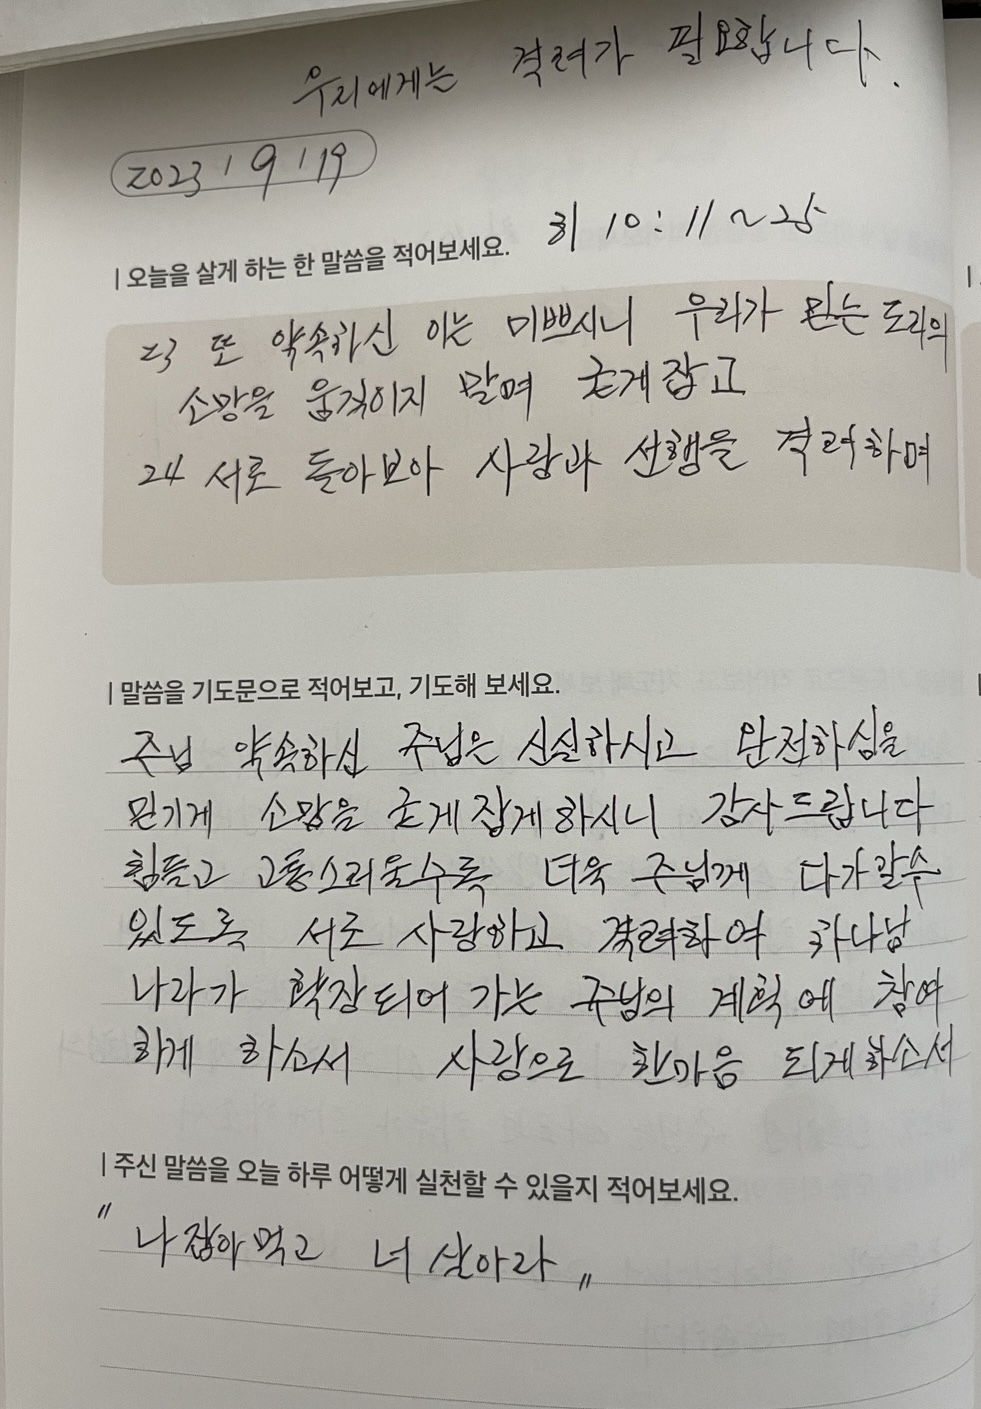 우리에게는 격려가 필요합니다.
2023 / 9 / 19
히 10 : 11 ~ 25
| 오늘을 살게 하는 한 말씀을 적어보세요.
23 또 약속하신 이는 미쁘시니 우리가 믿는 도리의
소망을 움직이지 말며 굳게 잡고
24 서로 돌아보아 사랑과 선행을 격려하며
| 말씀을 기도문으로 적어보고, 기도해 보세요.
주님 약속하신 주님은 신실하시고 완전하심을
믿기에 소망을 굳게 잡게 하시니 감사드립니다
힘들고 고통스러울수록 더욱 주님께 다가갈수
있도록 서로 사랑하고 격려하여 하나님
나라가 확장되어 가는 주님의 계획에 참여
하게 하소서 사랑으로 한마음 되게하소서
| 주신 말씀을 오늘 하루 어떻게 실천할 수 있을지 적어보세요.
" 나 잡아 먹고 너 살아라 "